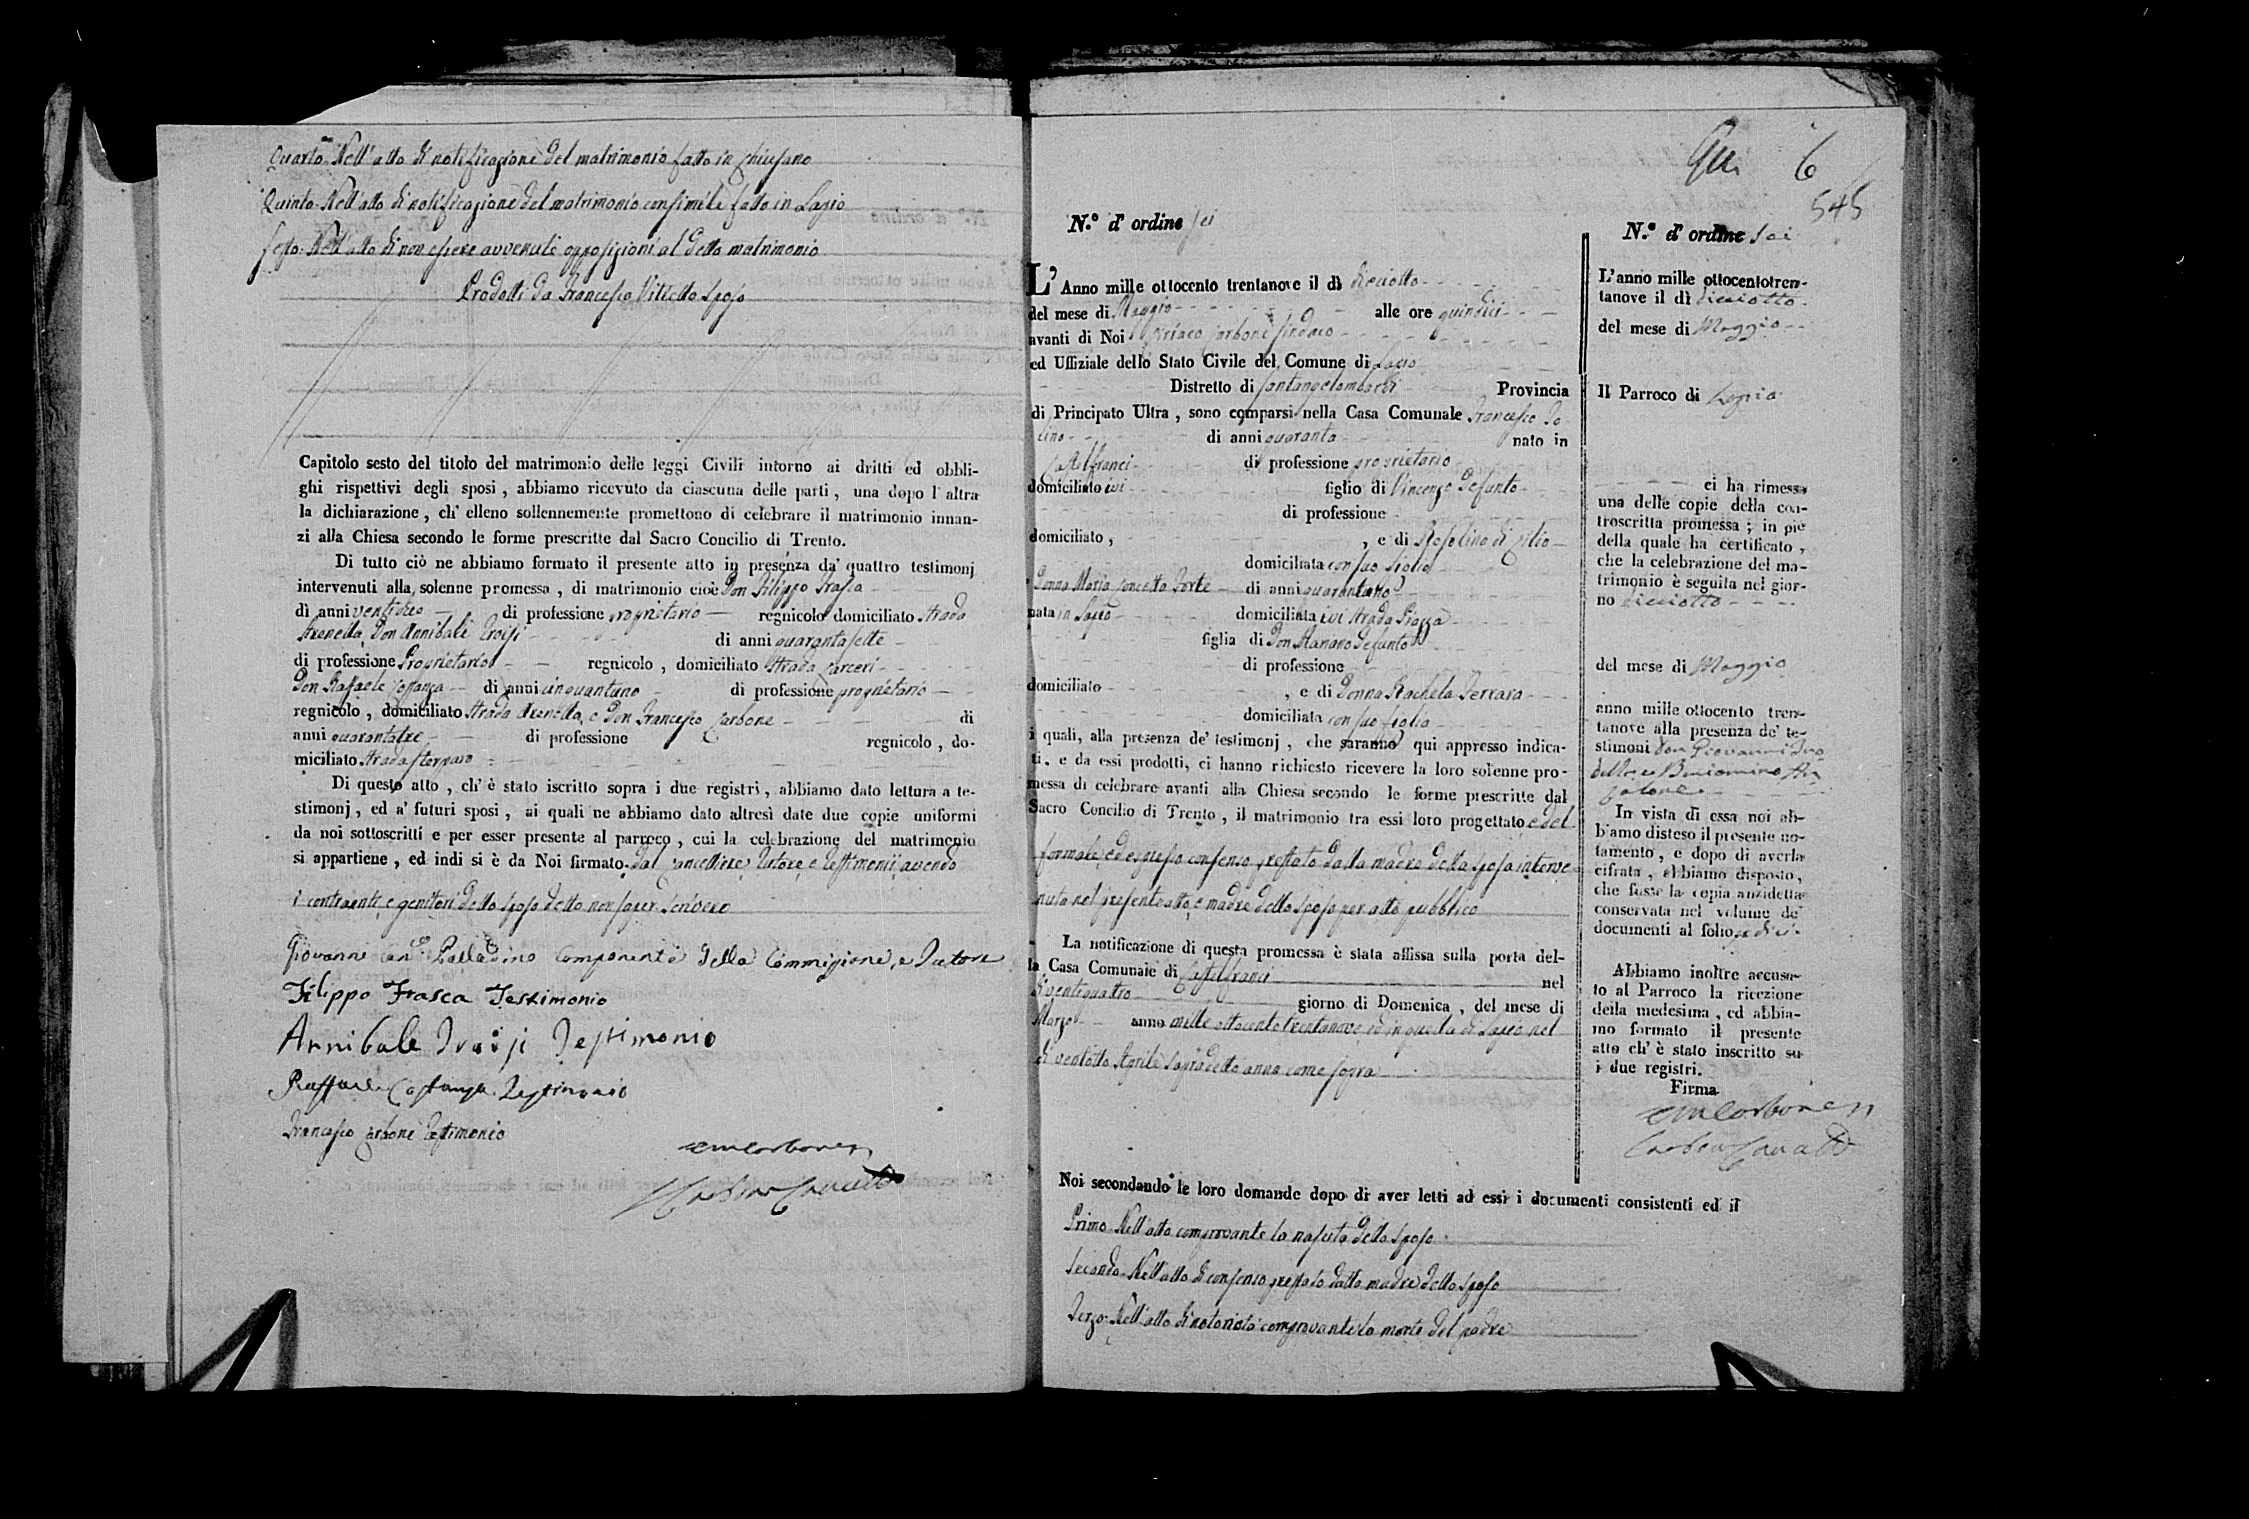 Quarto Nell'atto di notificazione del matrimonio fatto in Chiusano
Quinto Nell'atto di notificazione del matrimonio consimile fatto in Lapio
Sesto Nell'atto di non essere avvenute opposizioni al detto matrimonio
Prodotti da Francesco Vitiello sposo
Capitolo sesto del titolo del matrimonio delle leggi Civili intorno ai dritti ed obbli-
ghi rispettivi degli sposi, abbiamo ricevuto da ciascuna delle parti, una dopo l'altra
la dichiarazione, ch'elleno sollennemente promettono di celebrare il matrimonio innan-
zi alla Chiesa secondo le forme prescritte dal Sacro Concilio di Trento.
Di tutto ciò ne abbiamo formato il presente atto in presenza da' quattro testimonj
intervenuti alla solenne promessa, di matrimonio cioè Don Filippo Frasca
di anni ventidue di professione proprietario regnicolo domiciliato Strada
Don Annibale Troisi di anni quarantasette
di professione Proprietario regnicolo, domiciliato Strada Carceri
Don Raffaele Costanza di anni cinquantuno di professione proprietario
regnicolo, domiciliato Strada e Don Francesco Carbone di
anni quarantatre di professione regnicolo, do-
miciliato Strada
Di questo atto, ch'è stato iscritto sopra i due registri, abbiamo dato lettura a te-
stimonj, ed a' futuri sposi, ai quali ne abbiamo dato altresì date due copie uniformi
da noi sottoscritti e per esser presente al parroco, cui la celebrazione del matrimonio
si appartiene, ed indi si è da Noi firmato dal Cancelliere, Tutore e Testimonii avendo
i contraenti e genitori dello sposo detto non saper scrivere
Giovanni Can.co Palladino Componente della Commissione, e Tutore
Filippo Frasca Testimonio
Annibale Troisi Testimonio
Raffaele Costanza Testimonio
Francesco Carbone Testimonio
6
545
N.° d'ordine sei
L'Anno mille ottocento trentanove il dì dieciotto
del mese di Maggio alle ore quindici
avanti di Noi Ciriaco Carbone Sindaco
ed Uffiziale dello Stato Civile del Comune di Lapio
Distretto di Santangelombardi Provincia
di Principato Ultra, sono comparsi nella Casa Comunale Francesco
di anni quaranta nato in
Castelfranci di professione proprietario
domiciliato ivi figlio di Vincenzo defunto
di professione
domiciliato, , e di
domiciliata con suo figlio
Donna Maria Concetta Forte di anni
nata in Lapio domiciliata ivi Strada Piazza
figlia di Don Mariano defunto
di professione
domiciliato , e di Donna Rachela Ferrara
domiciliata con sua figlia
i quali, alla presenza de' testimonj, che saranno qui appresso indica-
ti, e da essi prodotti, ci hanno richiesto ricevere la loro solenne pro-
messa di celebrare avanti alla Chiesa secondo le forme prescritte dal
Sacro Concilio di Trento, il matrimonio tra essi loro progettato e del
formale, ed espresso consenso prestato dalla madre della sposa interve-
nuta nel presente atto, e madre dello sposo per atto pubblico
La notificazione di questa promessa è stata affissa sulla porta del-
la Casa Comunale di Castelfranci nel
dì ventiquattro giorno di Domenica, del mese di
Marzo anno mille ottocento trentanove, ed in quella di Lapio nel
dì ventotto Aprile sopradetto anno come sopra
Noi secondando le loro domande dopo di aver letti ad essi i documenti consistenti ed il
Primo Nell'atto comprovante la nascita dello sposo
Secondo Nell'atto di consenso prestato dalla madre dello sposo
Terzo Nell'atto di notorietà comprovante la morte del padre
N.° d'ordine sei
L'anno mille ottocentotren-
tanove il dì dieciotto
del mese di Maggio
Il Parroco di Lapio
ci ha rimessa
una delle copie della con-
troscritta promessa; in piè
della quale ha certificato,
che la celebrazione del ma-
trimonio è seguita nel gior-
no dieciotto
del mese di Maggio
anno mille ottocento tren-
tanove alla presenza de' te-
stimoni Don Giovanni
e Beniamino
In vista di essa noi ab-
biamo disteso il presente no-
tamento, e dopo di averla
cifrata, abbiamo disposto,
che fusse la copia anzidetta
conservata nel volume de'
documenti al folio
Abbiamo inoltre accusa-
to al Parroco la ricezione
della medesima, ed abbia-
mo formato il presente
atto ch'è stato inscritto su
i due registri.
Firma